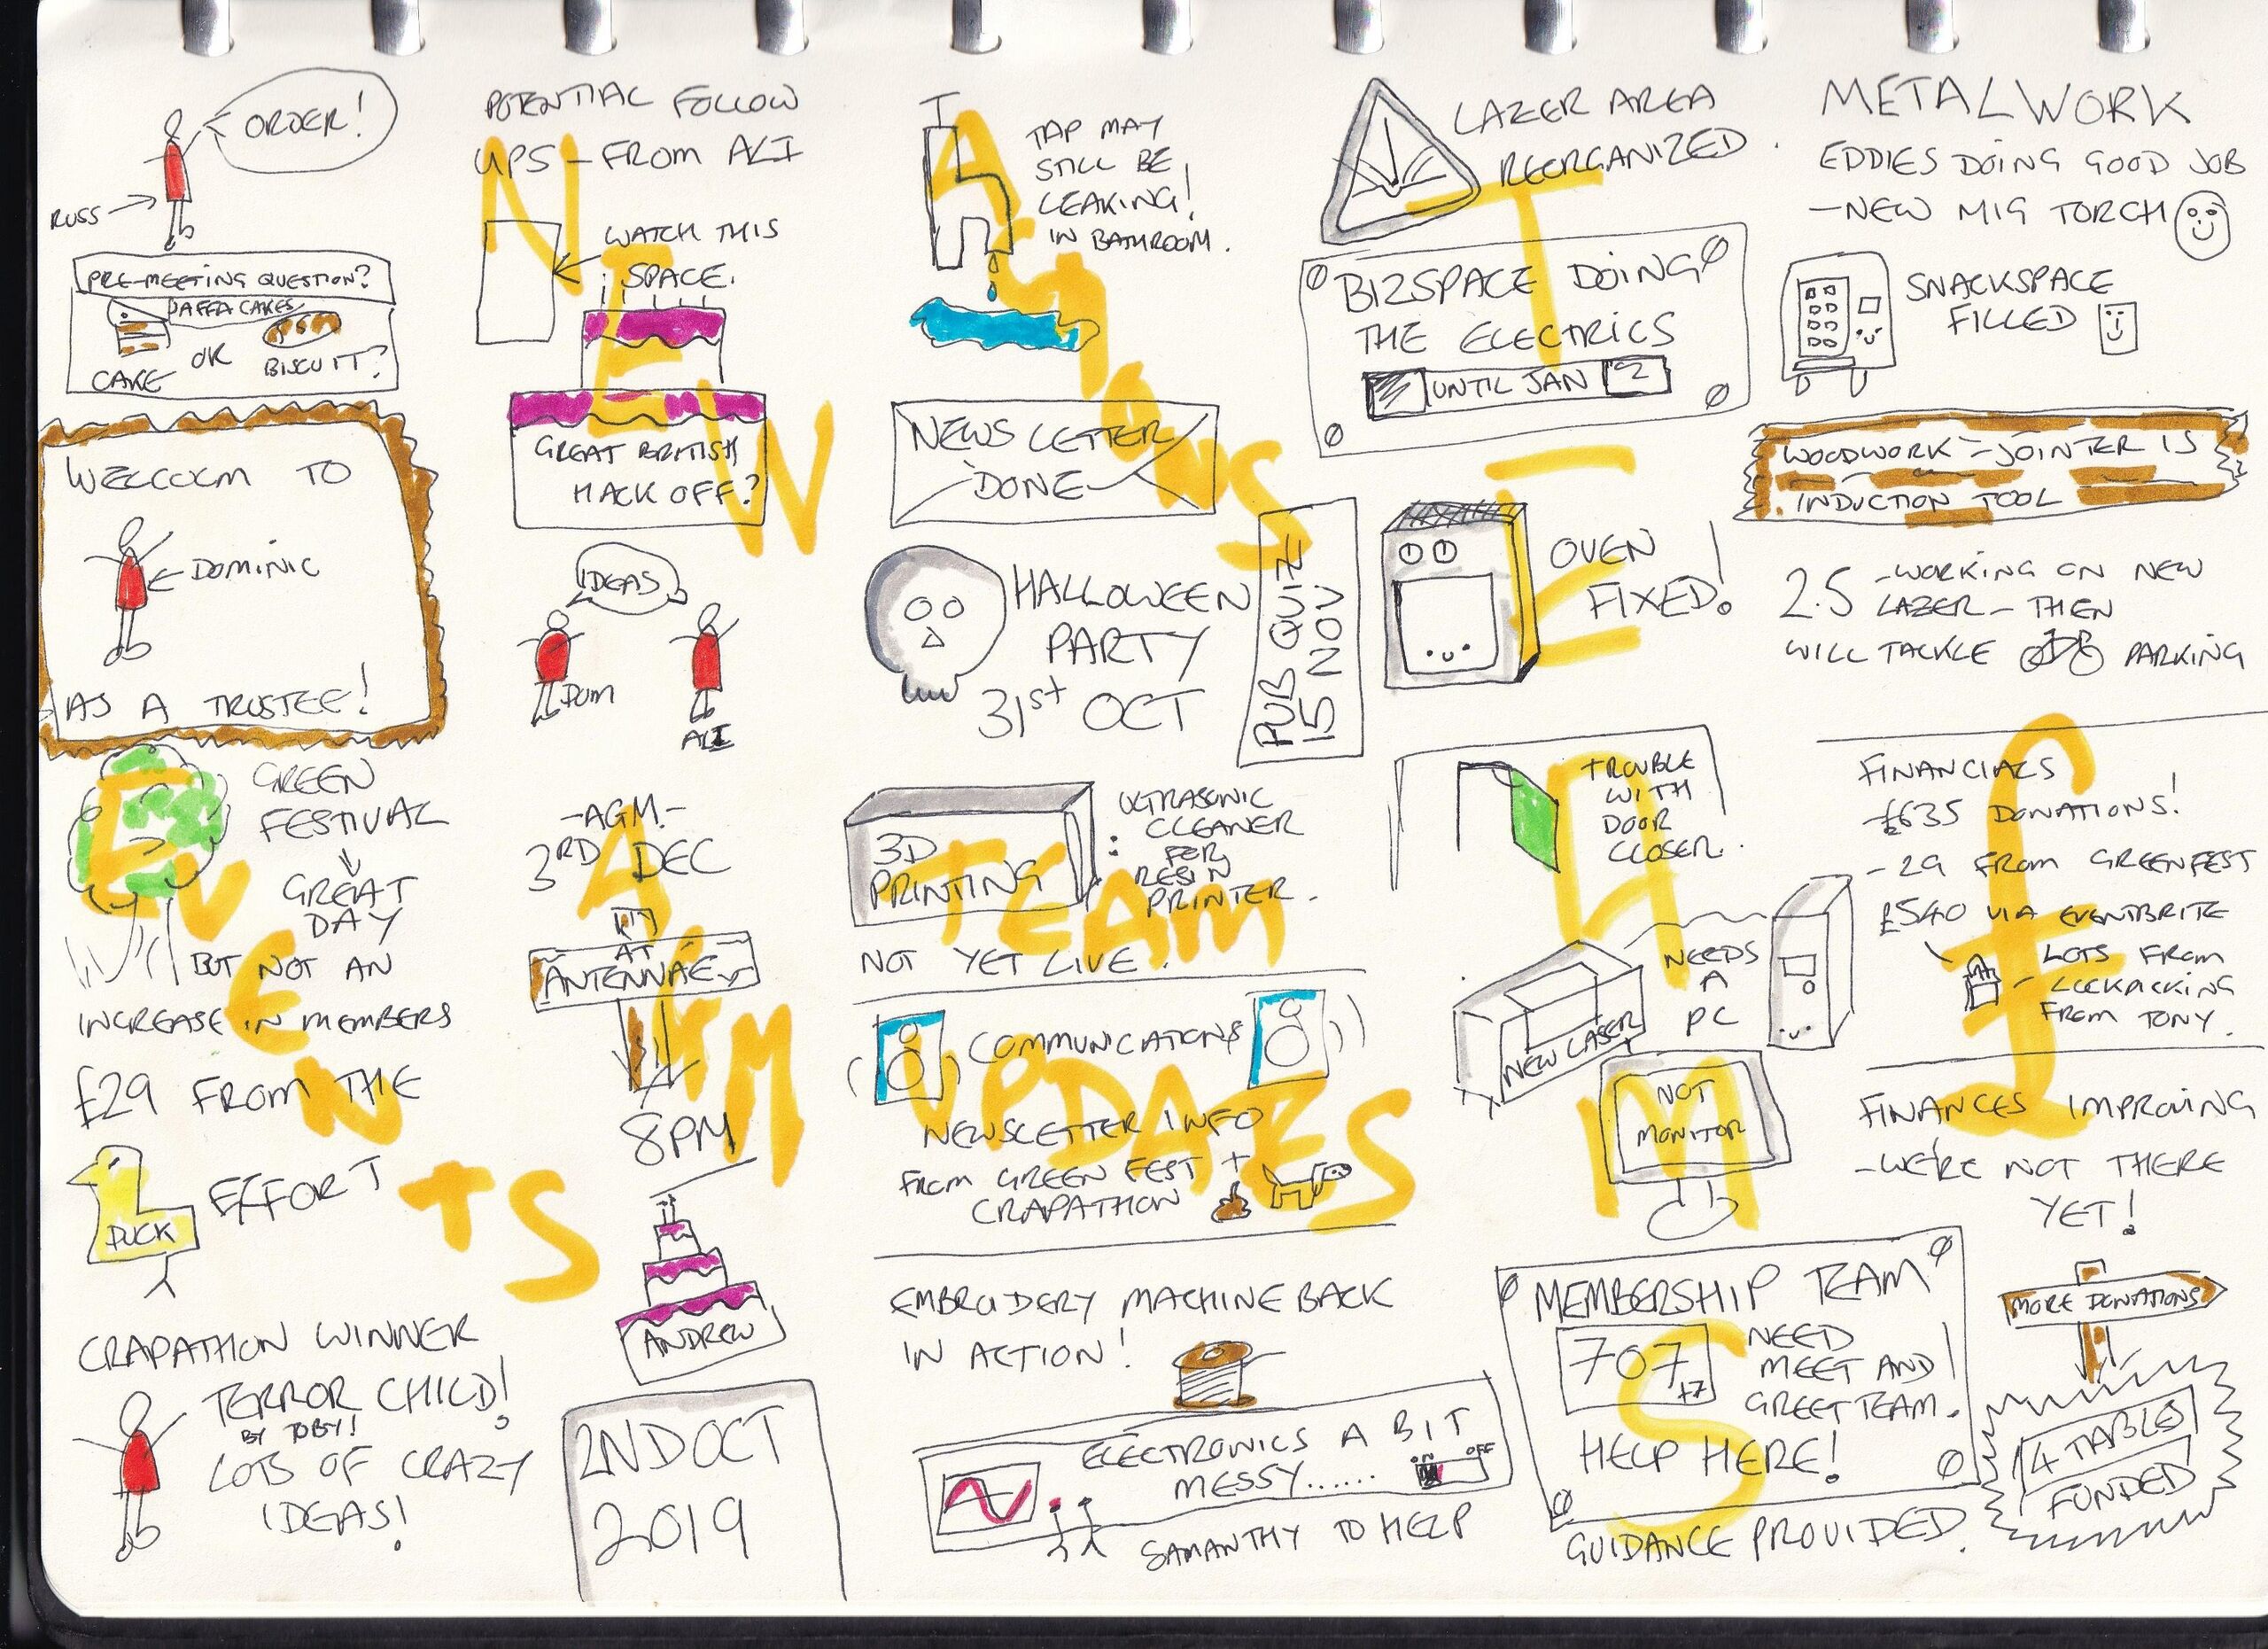 ORDER!
RUSS
PRE-MEETING QUESTION?
JAFFA CAKES
CAKE OR BISCUIT?
WELCOM TO
DOMINIC
AS A TRUSTEE!
EVENTS
GREEN
FESTIVAL
GREAT
DAY
BUT NOT AN
INCREASE IN MEMBERS
£29 FROM THE
DUCK
EFFORT
CRAPATHON WINNER
TERROR CHILD!
BY TOBY!
LOTS OF CRAZY
IDEAS!
POTENTIAL FOLLOW
UPS - FROM ALI
NEW
WATCH THIS
SPACE.
GREAT BRITISH
HACK OFF?
IDEAS
DOM
ALI
-AGM-
3RD DEC
AT
ANTENNAE
8PM
ANDREW
2ND OCT
2019
TAP MAY
STILL BE
LEAKING!
IN BATHROOM.
NEWSLETTER
DONE
HALLOWEEN
PARTY
31st OCT
PUB QUIZ
15 NOV
3D
PRINTING
ULTRASONIC
CLEANER
FOR
RESIN
PRINTER.
NOT YET LIVE.
TEAM
UPDATES
COMMUNICATIONS
NEWSLETTER INFO
FROM GREEN FEST +
CRAPATHON
EMBRODERY MACHINE BACK
IN ACTION!
ELECTRONICS A BIT
MESSY......
ON OFF
SAMANTHY TO HELP
LAZER AREA
REORGANIZED.
BIZSPACE DOING
THE ELECTRICS
UNTIL JAN 2
OVEN
FIXED!
TROUBLE
WITH
DOOR
CLOSER.
NEW LASER
NEEDS
A
PC
NOT
MONITOR
MEMBERSHIP TEAM
707
+7
NEED
MEET AND
GREET TEAM.
HELP HERE!
GUIDANCE PROVIDED.
METALWORK
EDDIES DOING GOOD JOB
-NEW MIG TORCH
SNACKSPACE
FILLED
WOODWORK - JOINTER IS
INDUCTION TOOL
2.5 -WORKING ON NEW
LAZER - THEN
WILL TACKLE PARKING
£
FINANCIALS
£635 DONATIONS!
-29 FROM GREENFEST
£540 VIA EVENTBRITE
LOTS FROM
LOCKPICKING
FROM TONY.
FINANCES IMPROVING
-WE'RE NOT THERE
YET!
MORE DONATIONS
4 TABLES
FUNDED